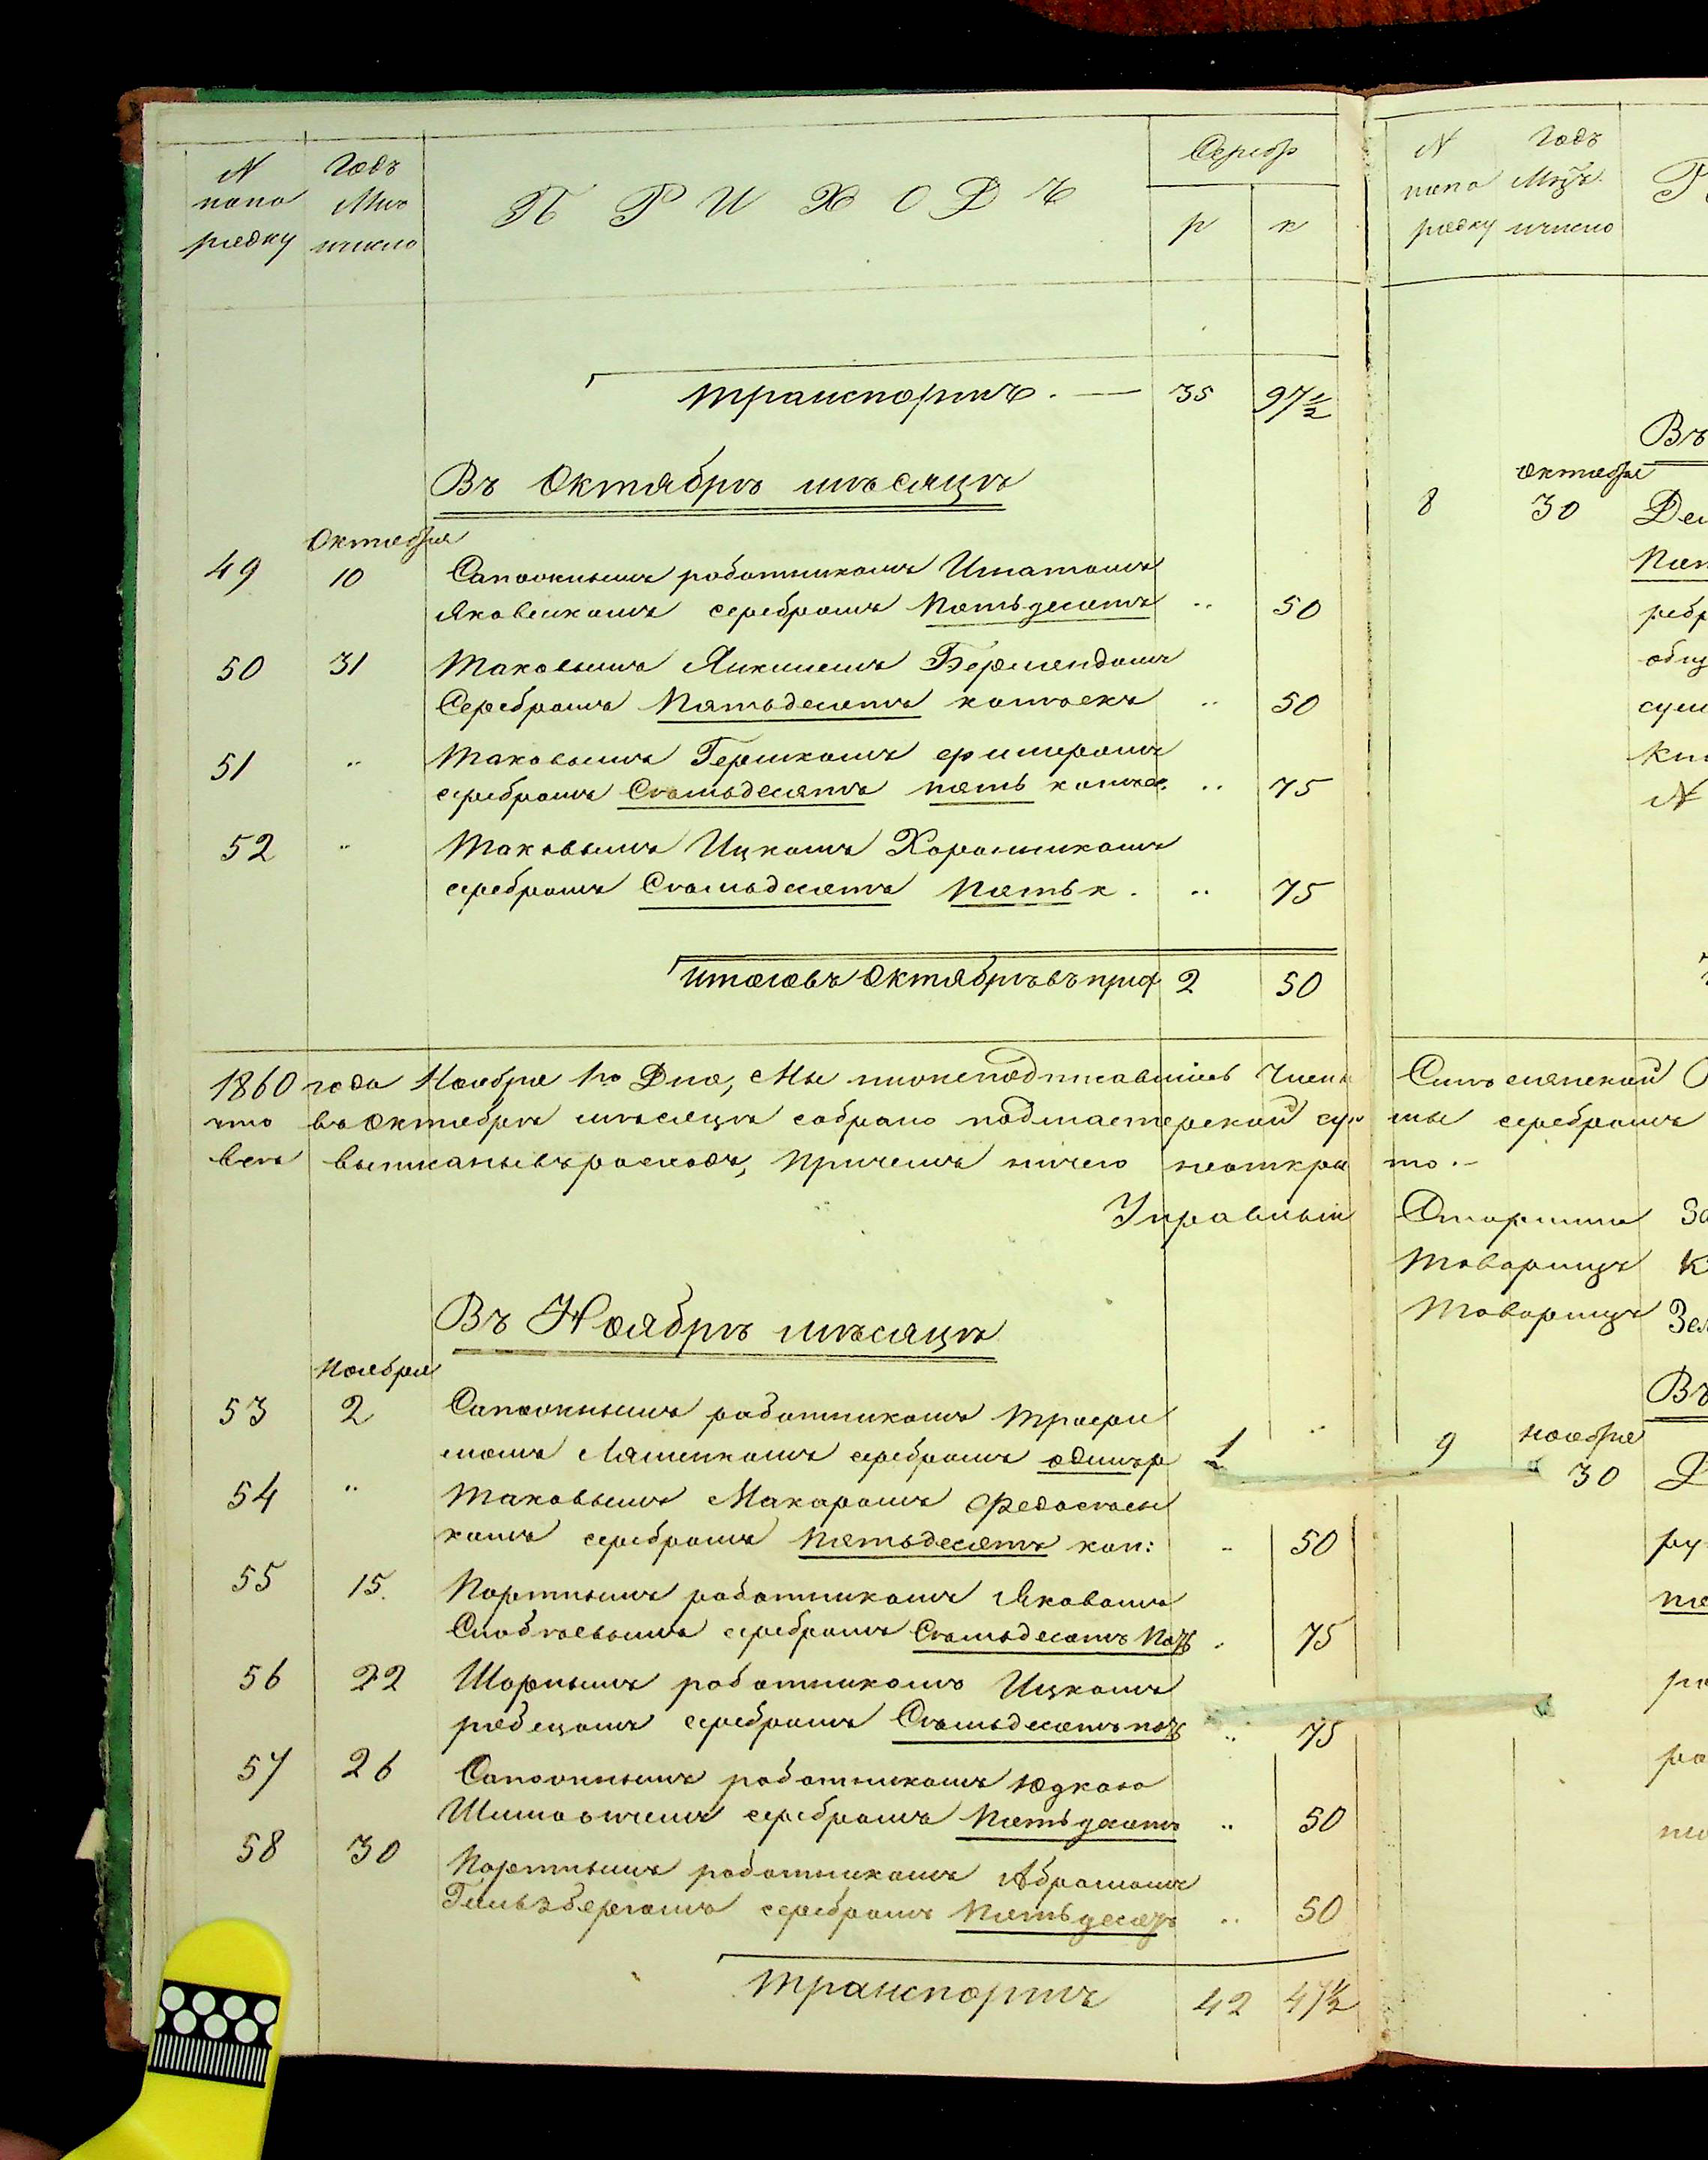 N Годъ
попо Мцъ
рядку ичисло
ПРИХОДЪ
Серебр
р к
Транспортъ. — 35 97½
Въ Октябрѣ мѣсяцѣ
Октября
49 10 Сапожнымъ работникомъ Игнатомъ
Яковенкомъ серебромъ Пятьдесятъ .. 50
50 31 Таковымъ Янкилемъ Бермандомъ
Серебромъ Пятьдесятъ копѣекъ .. 50
51 .. Таковымъ Гершкомъ
серебромъ Семьдесятъ пять копѣе. .. 75
52 .. Таковымъ Ицкомъ Хорошикомъ
серебромъ Семьдесятъ Пять к. .. 75
Итоговъ Октябрѣ въ прих 2 50
1860 года Ноября 1го Дня, Мы нижеподписавшіесь Члены
что въ Октябрѣ мѣсяцѣ собрано подмастерской сум
всѣ выписаны въ расходъ, Причемъ ничего неоткры
Управный
Въ Ноябрѣ мѣсяцѣ
Ноября
53 2 Сапожнымъ работникомъ Трофи
момъ Ляшенкомъ серебромъ одинъ р 1 ..
54 .. Таковымъ Макаромъ Федосѣен
комъ серебромъ Пятьдесятъ коп: .. 50
55 15. Портнымъ работникомъ Яковомъ
серебромъ Семьдесятъ Пять . 75
56 22 Шорнымъ работникомъ Ицкомъ
серебромъ Семьдесятъ пять .. 75
57 26 Сапожнымъ работникомъ Юдкою
Шимовичемъ серебромъ Пятьдесятъ .. 50
58 30 Портнымъ работникомъ Абрамомъ
Гильзбергомъ серебромъ Пятьдесятъ .. 50
Транспортъ 42 47½
N Годъ
попо Мцъ.
рядку ичисло
Въ
Октября
8 30
ребр
общ
сум
N
мы серебромъ
то.-
Старшина
Товарищъ
Товарищъ
Въ
Ноября
9 30